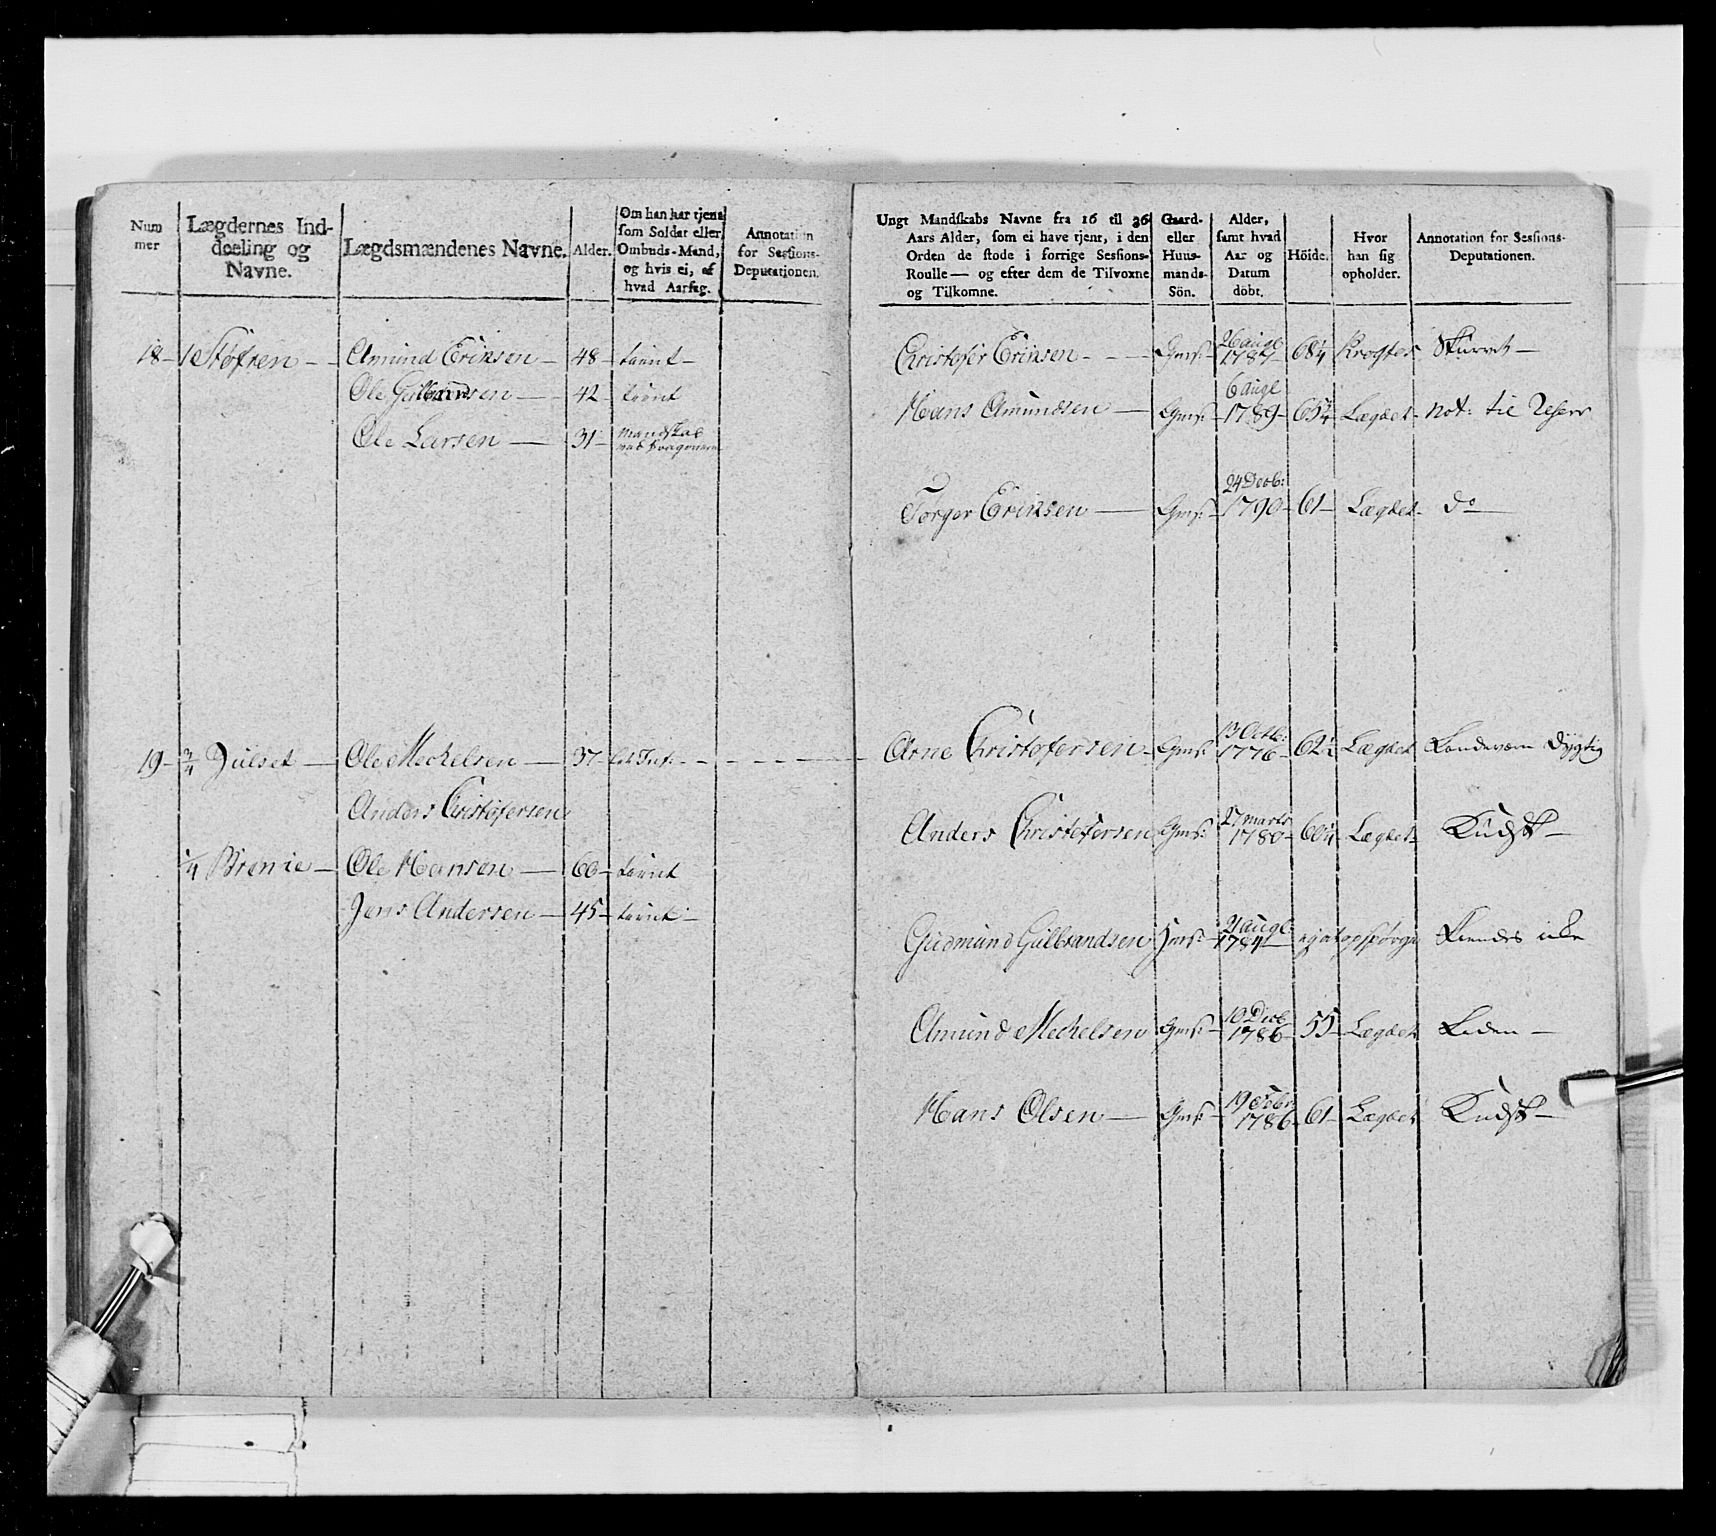 Num
mer
Lægdernes Ind-
deeling og
Navne.
Lægdsmændenes Navne.
Alder.
Om han har tjent
som Soldat eller
Ombuds-Mand,
og hvis ei, af
hvad Aarsag.
Annotation
for Sessions-
Deputationen.
18 - 1 Støfren - Amund Erinsen - 48 - tient -
Ole Gulbrandsen - 42 - tient
Ole Larsen - 31 - Mandskab
ved Dragonerne
19 - 3/4 Julset - Ole Mechelsen - 37 -
Anders Christofersen
1/4 Brenie - Ole Hansen - 60 - tient
Jens Andersen - 45 - tient -
Ungt Mandskabs Navne fra 16 til 36
Aars Alder, som ei have tjent, i den
Orden de stode i forrige Sessions-
Roulle — og efter dem de Tilvoxne
og Tilkomne.
Gaard-
eller
Huus-
mands-
Sön.
Alder,
samt hvad
Aar og
Datum
döbt.
Höide.
Hvor
han sig
opholder.
Annotation for Sessions-
Deputationen.
Christofer Erinsen - Gms: 26 augl 1787 - 68 1/4 Skurvet -
Hans Amundsen - Gms: 6 augl 1789 - 65 1/4 Lægdet - not: til Reserv
Torger Erinsen - Gms: 24 Decb: 1790 - 61 - Lægdet - do
Arne Christofersen - Gms: 13 Octb: 1776 - 62 1/2 Lægdet Landeværn dygtig
Anders Christofersen Gms: 27 Marts 1780 - 60 1/4 Lægdet - Kudsk -
Gudmund Gulbrandsen Hms: 21 augl: 1784 ej at opspørge Kiendes icke
Amund Mechelsen Gms: 10 Decb 1786 - 55 - Lægdet Liden -
Hans Olsen - Gms: 19 Febr 1786 - 61 - Lægdet Kudsk -